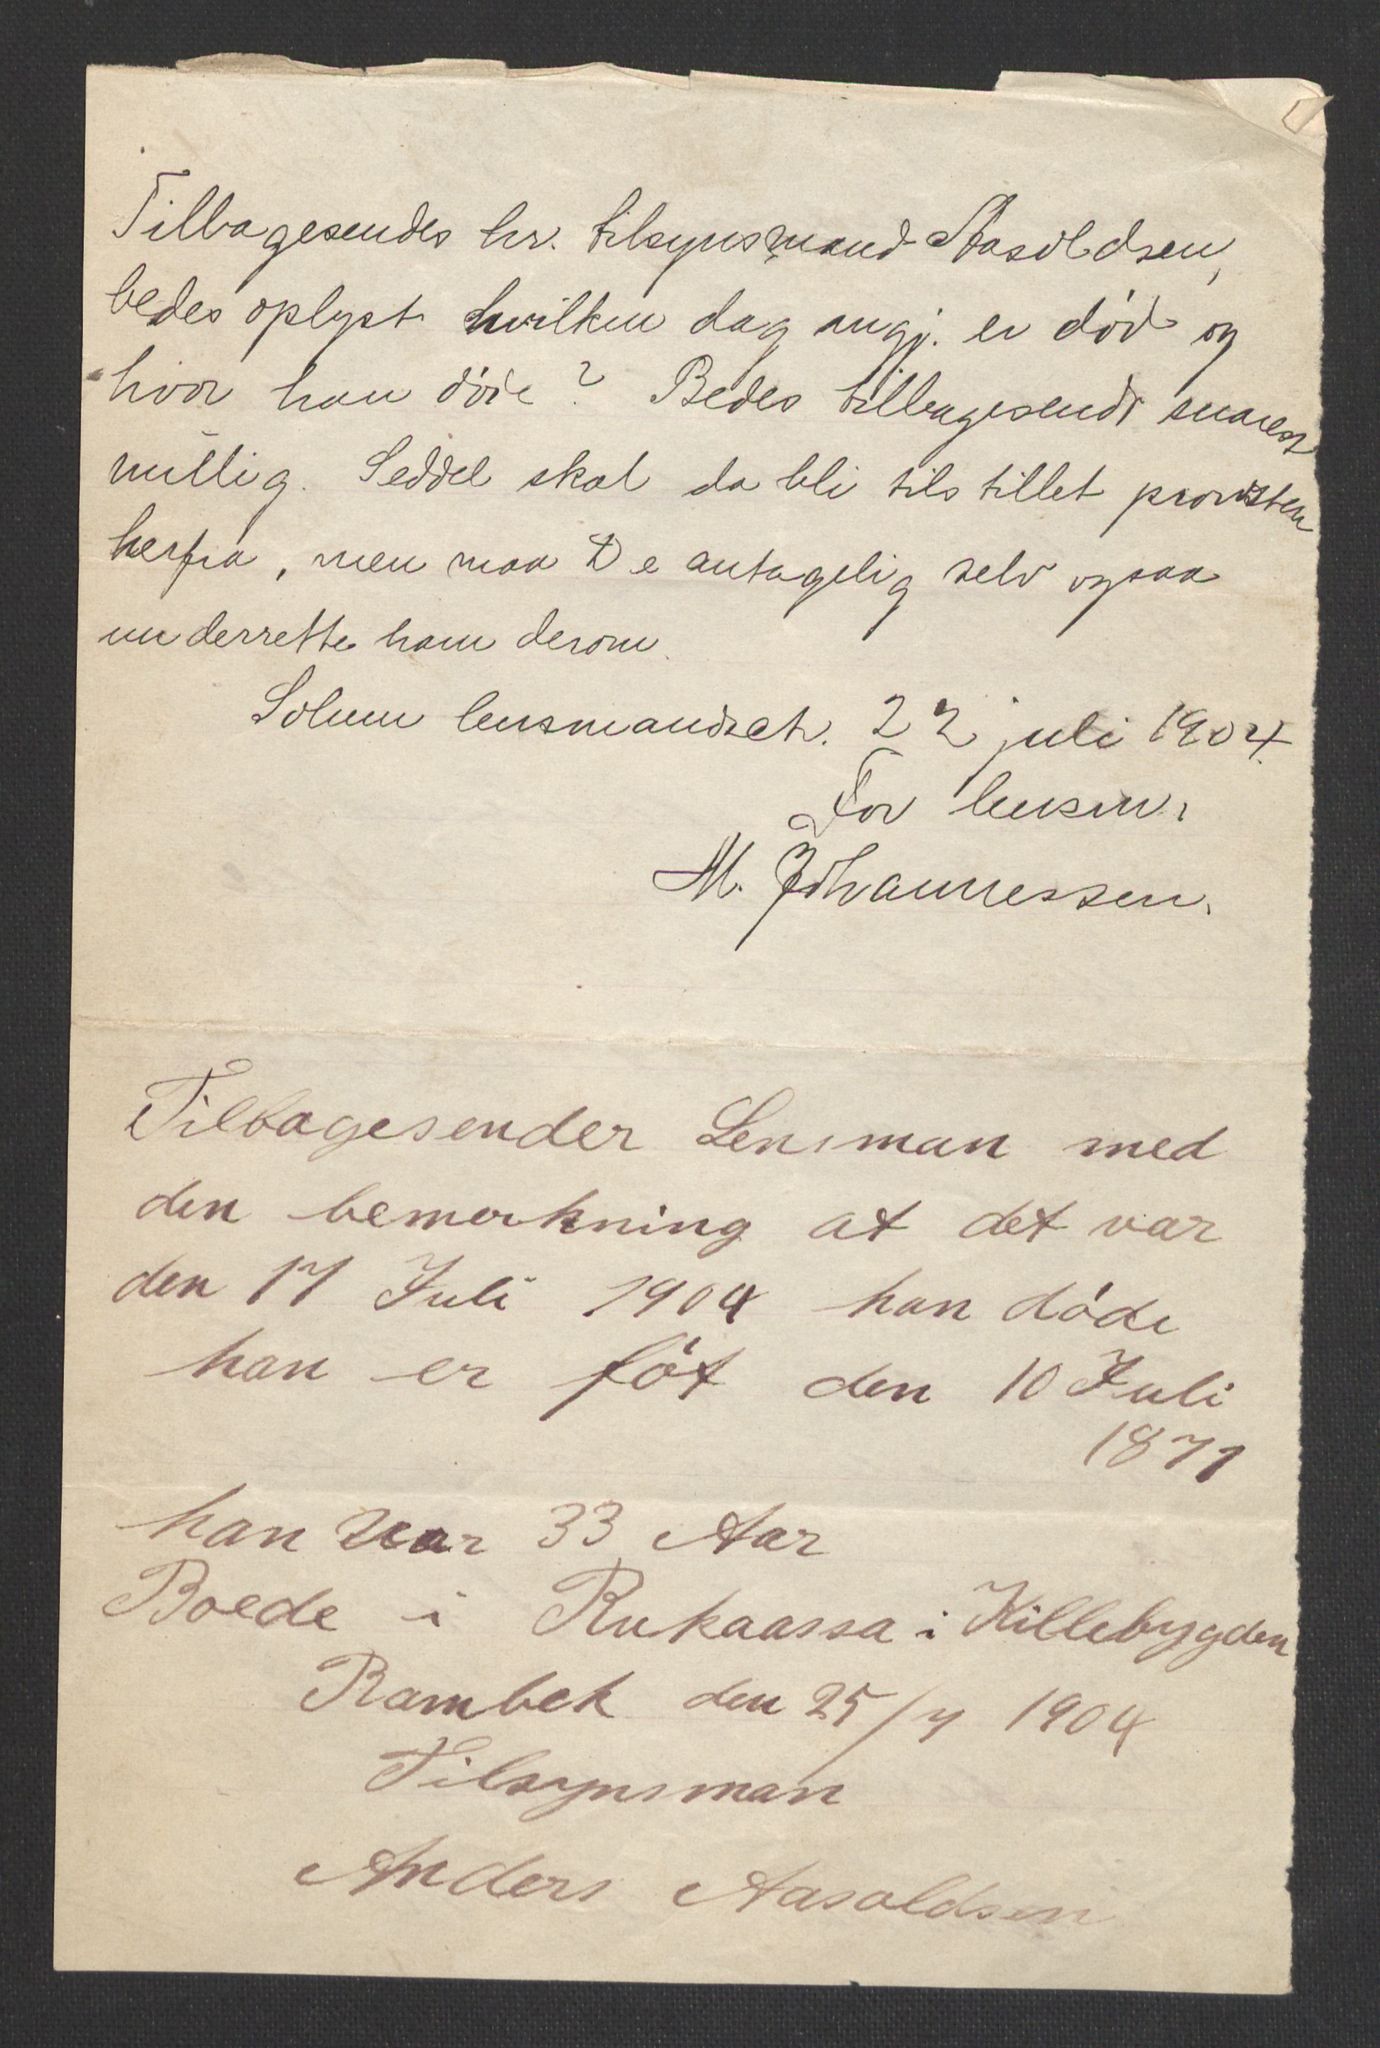 Tilbagesendes hr. tilsynsmand Aasoldsen,
bedes oplyst hvilken dag angj. er död og
hvor han döde? Bedes tilbagesendt snarest
mulig. Seddel skal da bli tilstillet provsten
herfra, men maa De antagelig selv ogsaa
underrette ham derom.
Solum lensmandsch. 22 juli 1904.
For lensm.
M. Johannessen.
Tilbagesender Lensman med
den bemerkning at det var
den 17 Juli 1904 han döde
han er föt den 10 Juli
1871
han var 33 Aar
Boede i Rukaassa i Killebygden
Rambek den 25/7 1904
Tilsynsman
Anders Aasoldsen